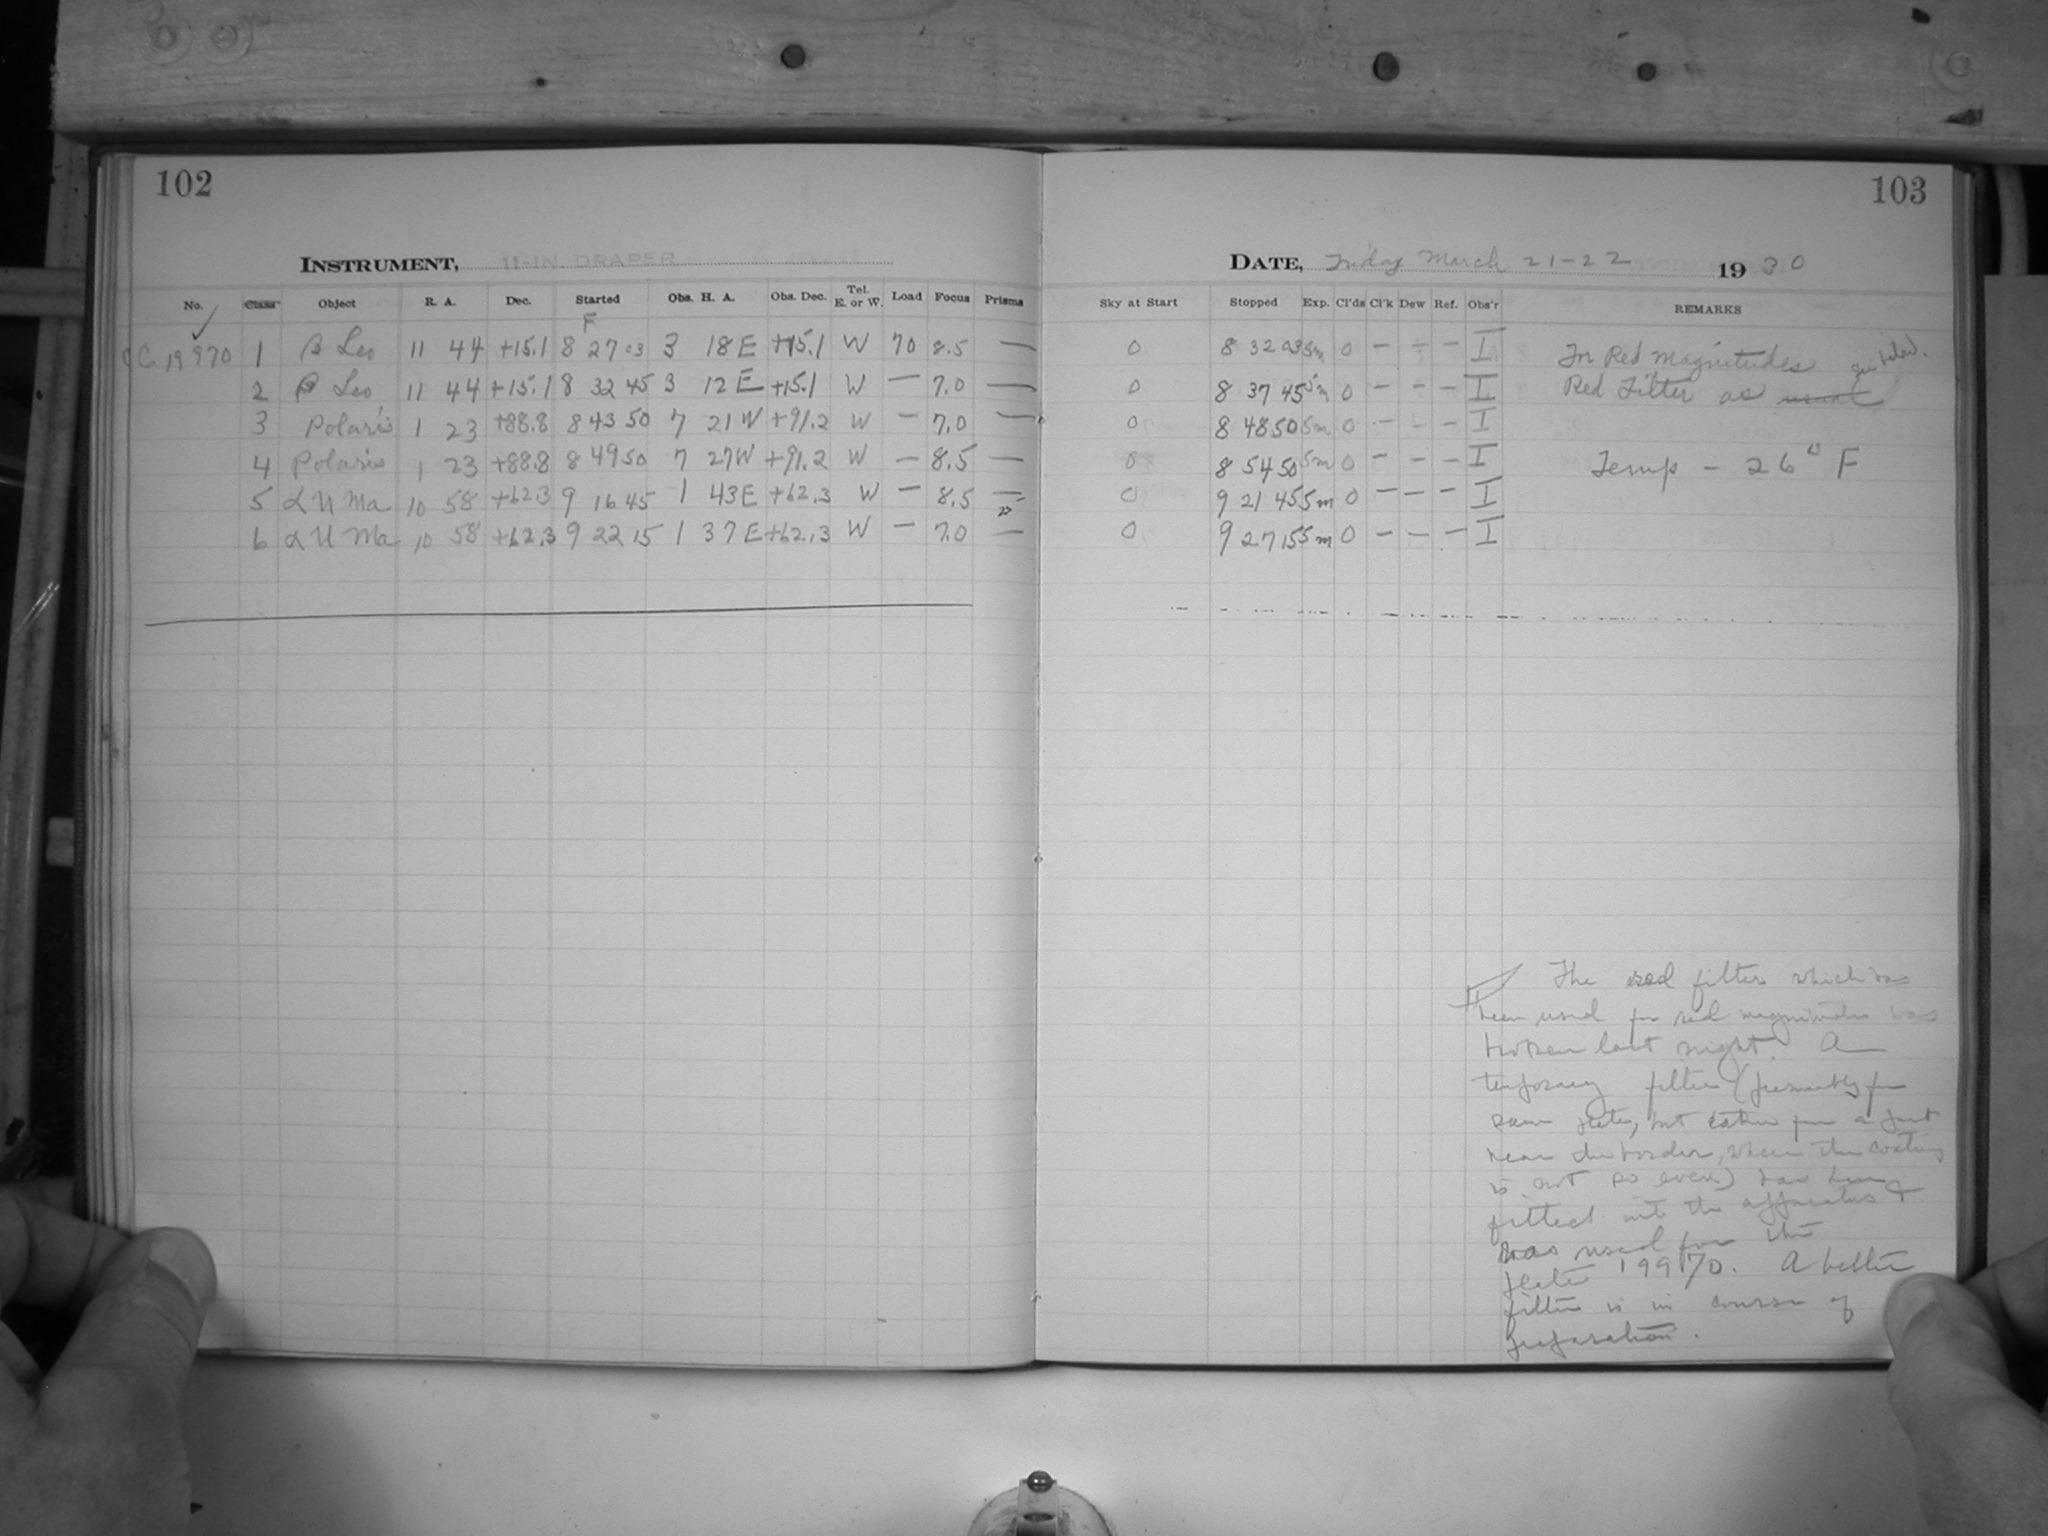 102
INSTRUMENT, 11-IN DRAPER
No. Class Object R. A. Dec. Started Obs. H. A. Obs. Dec. Tel. E. or W. Load Focus Prisms
F
C 19970 1 β Leo 11 44 +15.1 8 27 03 3 18 E +15.1 W 70 8.5 —
2 β Leo 11 44 +15.1 8 32 45 3 12 E +15.1 W — 7.0 —
3 Polaris 1 23 +88.8 8 43 50 7 21 W +91.2 W — 7.0 —
4 Polaris 1 23 +88.8 8 49 50 7 27 W +91.2 W — 8.5 —
5 α U Ma 10 58 +62.3 9 16 45 1 43 E +62.3 W — 8.5 —
6 α U Ma 10 58 +62.3 9 22 15 1 37 E +62.3 W — 7.0 —
103
DATE, Friday March 21-22 1930
Sky at Start Stopped Exp. Cl'ds Cl'k Dew Ref. Obs'r REMARKS
0 8 32 03 5m 0 — — — I For Red Magnitudes
0 8 37 45 5m 0 — — — I Red Filter as usual
0 8 48 50 5m 0 — — — I
0 8 54 50 5m 0 — — — I Temp - 26° F
0 9 21 45 5m 0 — — — I
0 9 27 15 5m 0 — — — I
The red filter which has
been used for red magnitudes was
broken last night. A
temporary filter (presumably from
same plate, but taken from a part
near the border, where the coating
is not so even) has been
fitted into the apparatus &
was used for this
plate 19970. A better
filter is in course of
preparation.